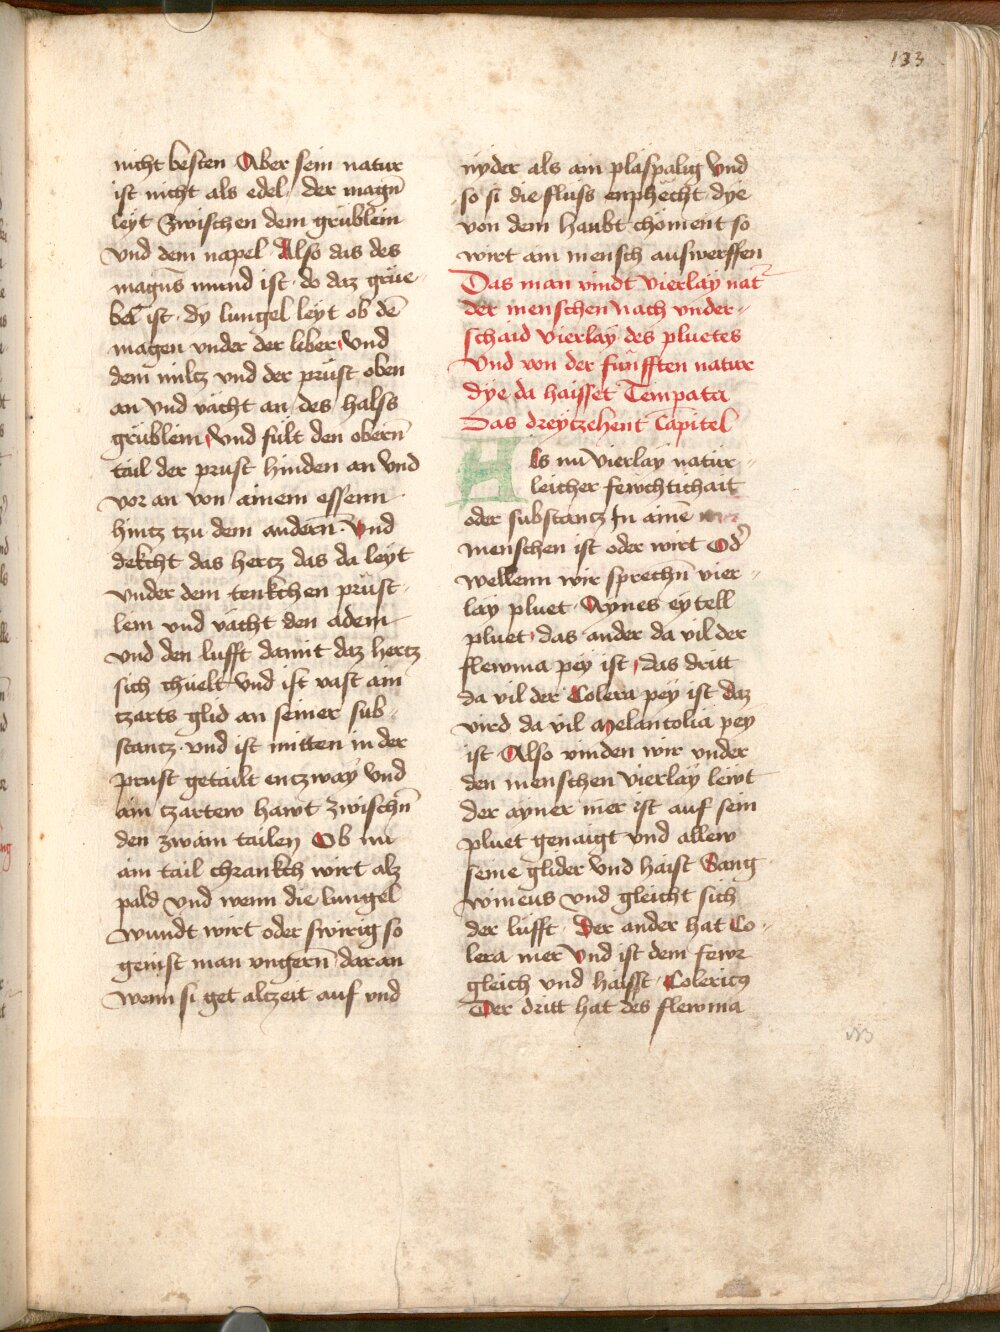 133
nicht besten Aber sein natur
ist nicht als edel der magñ
leyt Zwischen dem grüblein
vnd dem napel Also das des
magñs mund ist do daz grüe
bel ist dy lungel leyt ob dē
magen vnder der leber vnd
dem miltz vnd der prüst oben
an vnd vächt an des halss
grüblein vnd fült den oberñ
tail der prust hinden an vnd
vor an von ainem essenn
hintz tzu dem anderñ vnd
dekcht das hertz das da leyt
vnder dem tenkchen prüst
lein vnd vächt den adem
vnd den lufft damit daz hertz
sich chüelt vnd ist vast ain
tzarts glid an seiner sub
stantz vnd ist mitten in der
prust getailt entzway vnd
ain tzartew hawt zwischñ
den zwain tailen Ob nu
ain tail chrankch wirt alz
pald vnd wenn die lungel
wundt wirt oder swirig so
genist man vngerñ daran
wenn si get altzeit auf vnd
nyder als ain plaspalig vnd
so si die fluss enphecht dye
von dem haubt choment so
wirt ain mensch auswerffen
Das man vindt vierlay nat
der menschen nach vnder
schaid vierlay des pluetes
vnd von der fünfften natur
dye da haisset Tempata
Das dreytzehent Capitel
Als nu vierlay natur
leicher fewchtichait
oder substantz In aine
menschen ist oder wirt Od
wellenn wir sprechñ vier
lay pluet Aynes eytell
pluet das ander da vil der
flewma pey ist das dritt
da vil der Colera pey ist daz
vird da vil Melancolia pey
ist Also vinden wir vnder
den menschen vierlay lewt
der ayner mer ist auf sein
pluet genaigt vnd allew
seine glider vnd haist Sang
wineus vnd gleicht sich
der lufft Der ander hat Co
lera mer vnd ist dem fewr
gleich vnd haisst Colericus
Der dritt hat des flewma